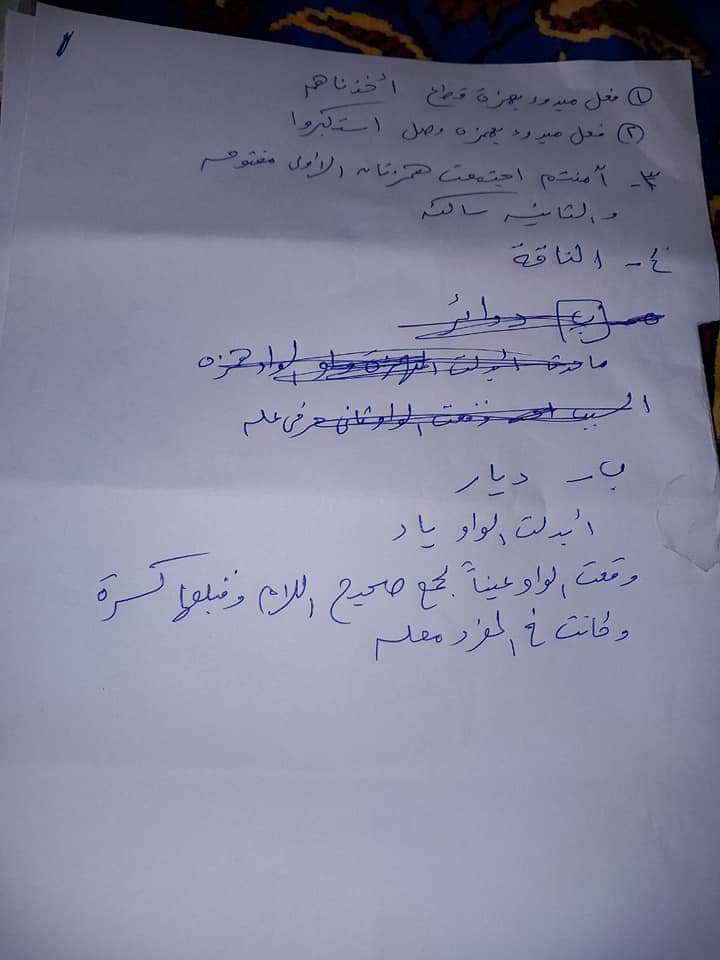 ① فعل مبدوء بهمزة قطع أخذناهم
② فعل مبدوء بهمزه وصل استكبروا
٣- آمنتم اجتمعت همزتان الاولى مفتوحه
والثانيه ساكنه
٤- الناقة
ب دوائر
أبدلت الواو همزه
السبب وقعت الواو ثاني حرفي عله
ب - ديار
أبدلت الواو ياء
وقعت الواو عيناً لجمع صحيح اللام وقبلها كسرة
وكانت في المفرد معله